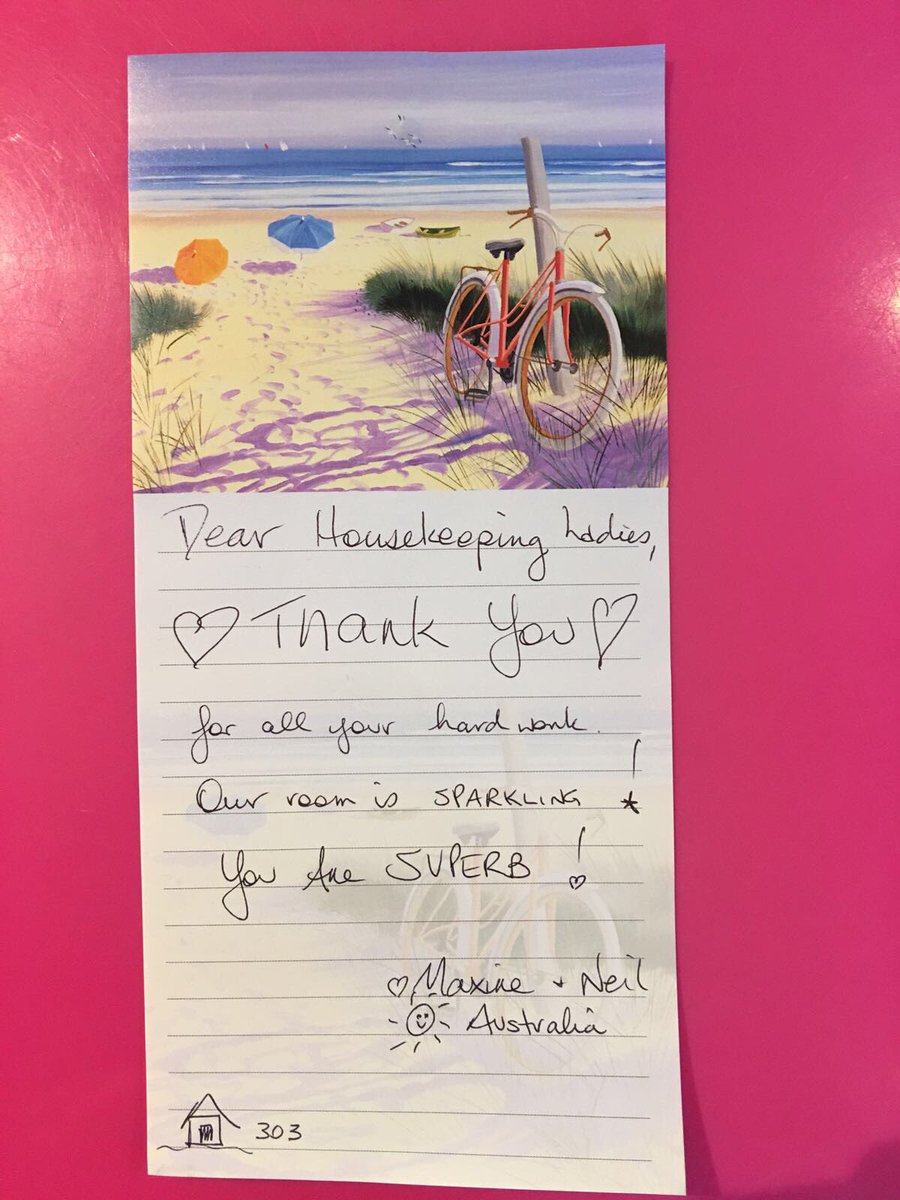 Dear Housekeeping Ladies,
♡ Thank You ♡
for all your hard work.
Our room is SPARKLING !
You Are SUPERB !
♡ Maxine + Neil
Australia
303